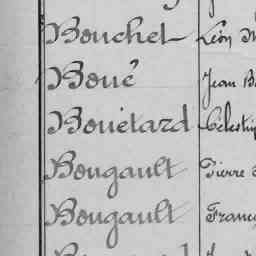 Bouchet Léon
Boué Jean
Bouëtard Célestin
Bougault Pierre
Bougault